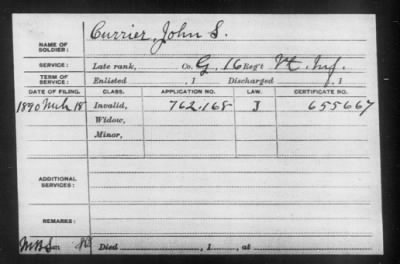 NAME OF SOLDIER: Currier, John S.
SERVICE: Late rank, Co. G, 16 Reg't Vt. Inf.
TERM OF SERVICE: Enlisted , 1 Discharged , 1
DATE OF FILING. CLASS. APPLICATION NO. LAW. CERTIFICATE NO.
1890 Mch 18 Invalid, 762,168 J 655667
Widow,
Minor,
ADDITIONAL SERVICES:
REMARKS:
Died , 1 , at